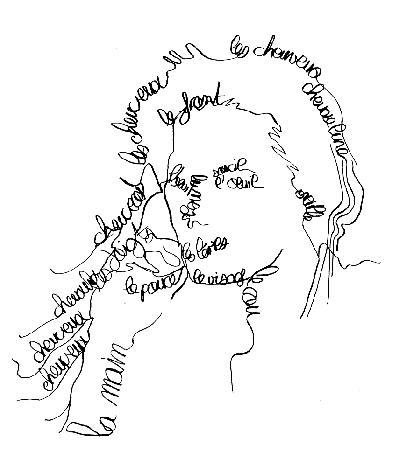 les cheveux
les cheveux
chevelure
le front
cheveux
sourcil
l'œil
le nez
oreille
les doigts
les lèvres
le pouce
le visage
le cou
cheveux
cheveux
cheveux
la main